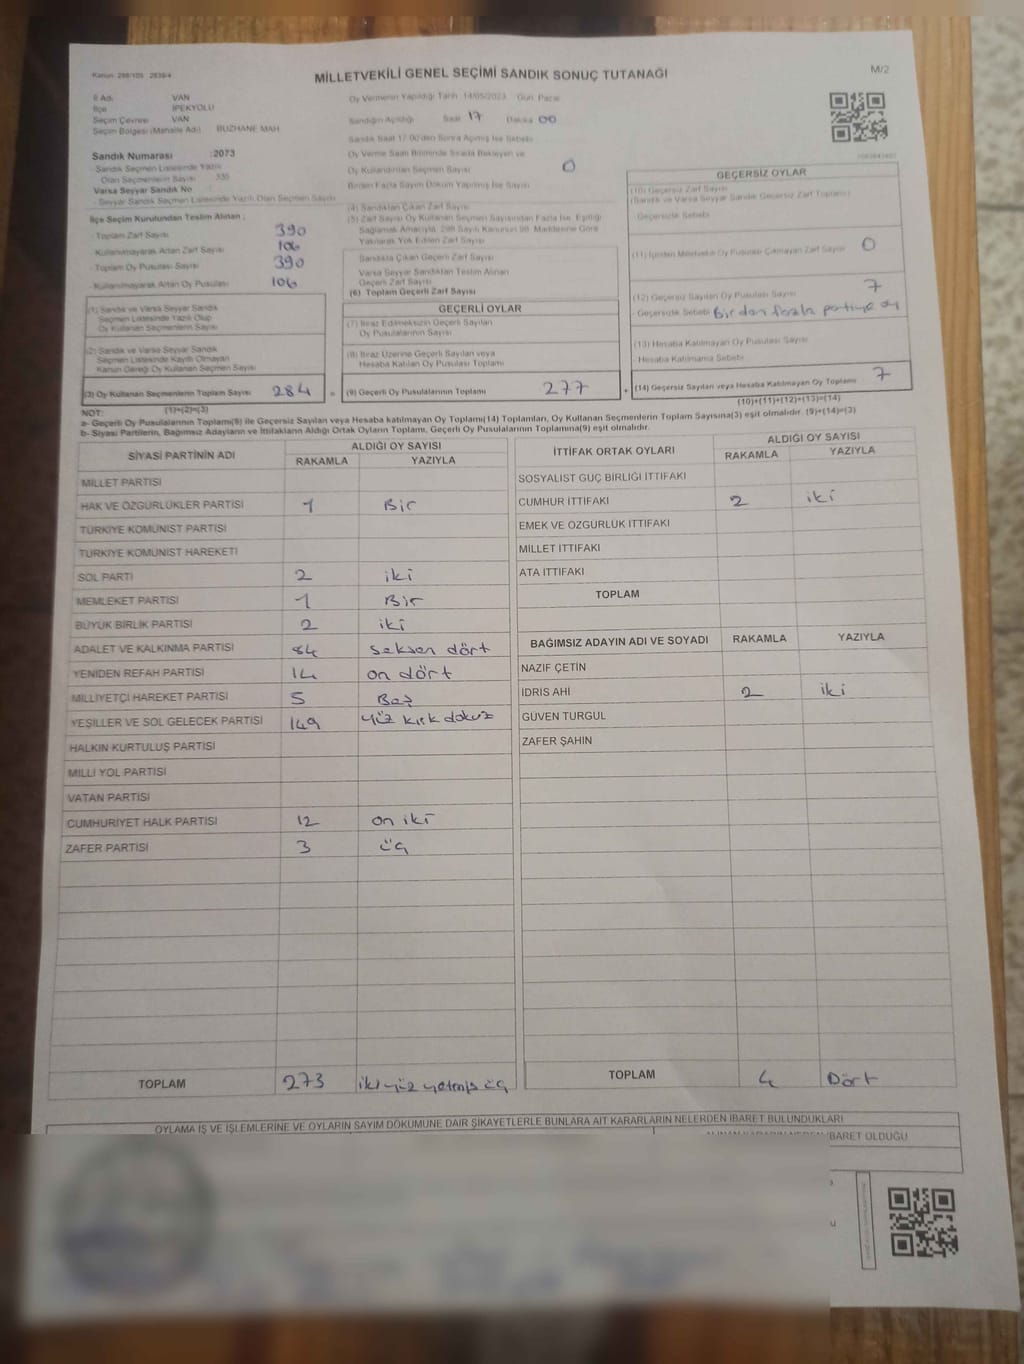 Kanun: 298/105 2839/4
MİLLETVEKİLİ GENEL SEÇİMİ SANDIK SONUÇ TUTANAĞI
M/2
İl Adı VAN
İlçe İPEKYOLU
Seçim Çevresi VAN
Seçim Bölgesi (Mahalle Adı) BUZHANE MAH
Sandık Numarası :2073
Sandık Seçmen Listesinde Yazılı
Olan Seçmenlerin Sayısı 335
Varsa Seyyar Sandık No :
- Seyyar Sandık Seçmen Listesinde Yazılı Olan Seçmen Sayısı
İlçe Seçim Kurulundan Teslim Alınan ;
- Toplam Zarf Sayısı 390
- Kullanılmayarak Artan Zarf Sayısı 106
- Toplam Oy Pusulası Sayısı 390
- Kullanılmayarak Artan Oy Pusulası 106
(1) Sandık ve Varsa Seyyar Sandık
Seçmen Listesinde Yazılı Olup
Oy Kullanan Seçmenlerin Sayısı
(2) Sandık ve Varsa Seyyar Sandık
Seçmen Listesinde Kayıtlı Olmayan
Kanun Gereği Oy Kullanan Seçmen Sayısı
(3) Oy Kullanan Seçmenlerin Toplam Sayısı 284 =
(1)+(2)=(3)
Oy Vermenin Yapıldığı Tarih :14/05/2023 Gün: Pazar
Sandığın Açıldığı Saat 17 Dakika 00
Sandık Saat 17.00'den Sonra Açılmış İse Sebebi
Oy Verme Saati Bitiminde Sırada Bekleyen ve
Oy Kullandırılan Seçmen Sayısı 0
Birden Fazla Sayım Döküm Yapılmış İse Sayısı
(4) Sandıktan Çıkan Zarf Sayısı
(5) Zarf Sayısı Oy Kullanan Seçmen Sayısından Fazla İse, Eşitliği
Sağlamak Amacıyla, 298 Sayılı Kanunun 98. Maddesine Göre
Yakılarak Yok Edilen Zarf Sayısı
Sandıkta Çıkan Geçerli Zarf Sayısı
Varsa Seyyar Sandıktan Teslim Alınan
Geçerli Zarf Sayısı
(6) Toplam Geçerli Zarf Sayısı
GEÇERLİ OYLAR
(7) İtiraz Edilmeksizin Geçerli Sayılan
Oy Pusulalarının Sayısı
(8) İtiraz Üzerine Geçerli Sayılan veya
Hesaba Katılan Oy Pusulası Toplamı
(9) Geçerli Oy Pusulalarının Toplamı 277 +
GEÇERSİZ OYLAR
(10) Geçersiz Zarf Sayısı
(Sandık ve Varsa Seyyar Sandık Geçersiz Zarf Toplamı)
Geçersizlik Sebebi
(11) İçinden Milletvekili Oy Pusulası Çıkmayan Zarf Sayısı 0
(12) Geçersiz Sayılan Oy Pusulası Sayısı 7
Geçersizlik Sebebi Birden fazla partiye oy
(13) Hesaba Katılmayan Oy Pusulası Sayısı
Hesaba Katılmama Sebebi
(14) Geçersiz Sayılan veya Hesaba Katılmayan Oy Toplamı 7
(10)+(11)+(12)+(13)=(14)
NOT:
a- Geçerli Oy Pusulalarının Toplamı(9) ile Geçersiz Sayılan veya Hesaba katılmayan Oy Toplamı(14) Toplamları, Oy Kullanan Seçmenlerin Toplam Sayısına(3) eşit olmalıdır. (9)+(14)=(3)
b- Siyasi Partilerin, Bağımsız Adayların ve İttifakların Aldığı Ortak Oyların Toplamı, Geçerli Oy Pusulalarının Toplamına(9) eşit olmalıdır.
SİYASİ PARTİNİN ADI ALDIĞI OY SAYISI
RAKAMLA YAZIYLA
MİLLET PARTİSİ
HAK VE ÖZGÜRLÜKLER PARTİSİ 1 Bir
TÜRKİYE KOMÜNİST PARTİSİ
TÜRKİYE KOMÜNİST HAREKETİ
SOL PARTİ 2 iki
MEMLEKET PARTİSİ 1 Bir
BÜYÜK BİRLİK PARTİSİ 2 iki
ADALET VE KALKINMA PARTİSİ 84 seksen dört
YENİDEN REFAH PARTİSİ 14 on dört
MİLLİYETÇİ HAREKET PARTİSİ 5 Beş
YEŞİLLER VE SOL GELECEK PARTİSİ 149 yüz kırk dokuz
HALKIN KURTULUŞ PARTİSİ
MİLLİ YOL PARTİSİ
VATAN PARTİSİ
CUMHURİYET HALK PARTİSİ 12 on iki
ZAFER PARTİSİ 3 üç
TOPLAM 273 iki yüz yetmiş üç
İTTİFAK ORTAK OYLARI ALDIĞI OY SAYISI
RAKAMLA YAZIYLA
SOSYALİST GÜÇ BİRLİĞİ İTTİFAKI
CUMHUR İTTİFAKI 2 iki
EMEK VE ÖZGÜRLÜK İTTİFAKI
MİLLET İTTİFAKI
ATA İTTİFAKI
TOPLAM
BAĞIMSIZ ADAYIN ADI VE SOYADI RAKAMLA YAZIYLA
NAZİF ÇETİN
İDRİS AHİ 2 iki
GÜVEN TURGUL
ZAFER ŞAHİN
TOPLAM 4 Dört
OYLAMA İŞ VE İŞLEMLERİNE VE OYLARIN SAYIM DÖKÜMÜNE DAİR ŞİKAYETLERLE BUNLARA AİT KARARLARIN NELERDEN İBARET BULUNDUKLARI
İBARET OLDUĞU